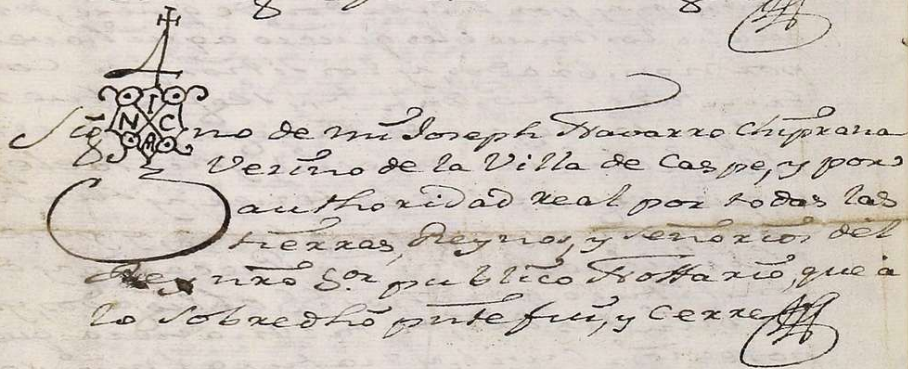 Sig✝no de mi Joseph Navarro Chiprana
Vezino de la Villa de Caspe, y por
authoridad real por todas las
tierras, Reynos, y señorios del
Rey nrō Sor publico Nottario, que a
lo sobredho pnte fui, y cerre